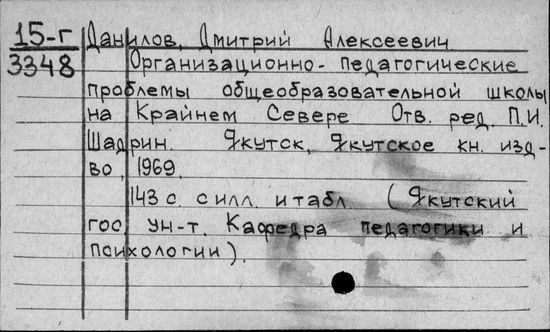 15-г Данилов, Дмитрий Алексеевич
3348 Организационно-педагогические
проблемы общеобразовательной школы
на Крайнем Севере Отв. ред. П.И.
Шадрин. Якутск, Якутское кн. изд-
во, 1969.
143 с. с илл. и табл. (Якутский
гос. ун-т. Кафедра педагогики и
психологии).